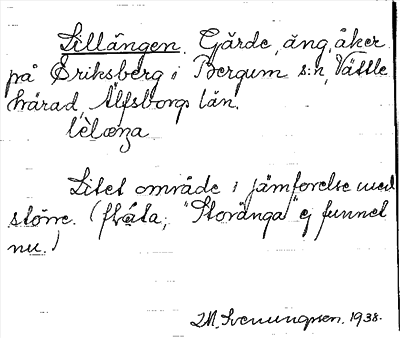 Lillängen. Gärde, äng, åker
på Eriksberg i Bergum s:n, Vättle
härad, Älfsborgs län.
lèlæŋa
Litet område i jämförelse med
större. ( "Storänga" ej funnet
nu.)
Svenungsson. 1938.